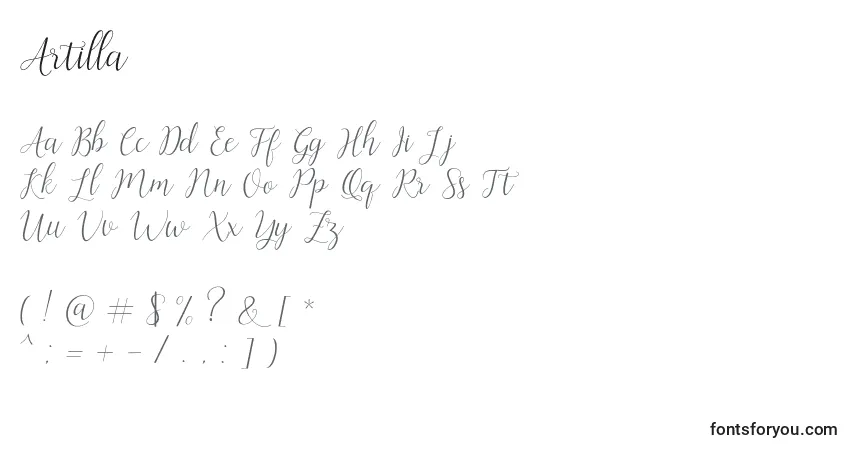 Artilla
Aa Bb Cc Dd Ee Ff Gg Hh Ii Jj
Kk Ll Mm Nn Oo Pp Qq Rr Ss Tt
Uu Vv Ww Xx Yy Zz
( ! @ # $ % ? & [ *
^ ; = + - / . , : ] )
fontsforyou.com